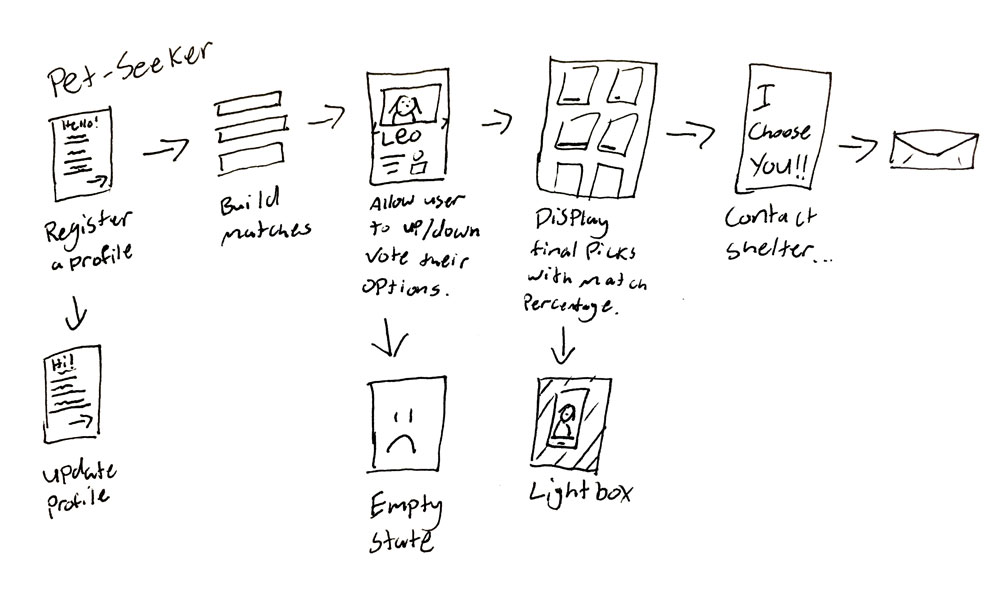 Pet-Seeker
Hello!
Register
a profile
Build
matches
LEO
Allow user
to up/down
vote their
options.
Display
final picks
with match
percentage.
I
Choose
You!!
Contact
shelter...
Hi!
update
profile
Empty
state
Lightbox